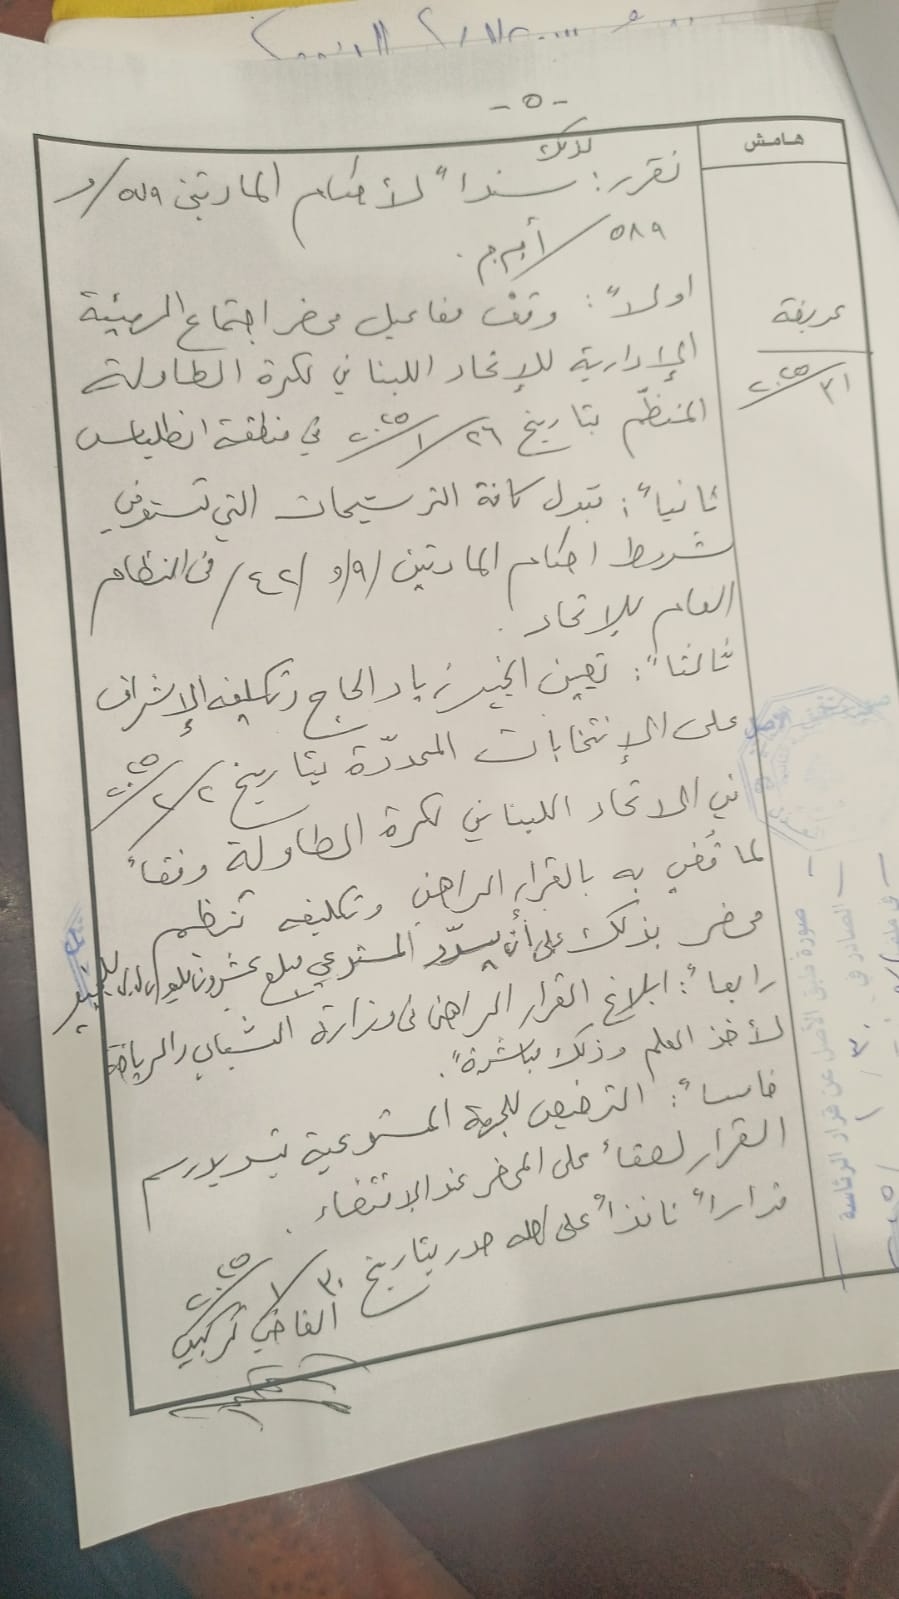 - ٥ -
هامش
لذلك
نقرر: سنداً لأحكام المادتين ٥٧٩/ و
٥٨٩/أ.م.م.
اولاً: وقف مفاعيل محضر اجتماع الهيئة
الإدارية للإتحاد اللبناني لكرة الطاولة
المنظّم بتاريخ ٢٦/١/٢٠٢٥ في منطقة انطلياس
ثانياً: قبول كافة الترشيحات التي تستوفي
شروط احكام المادتين /٩/ و /٤٢/ من النظام
العام للإتحاد.
ثالثاً: تعيين الخبير زياد الحاج وتكليفه الإشراف
على الإنتخابات المحددّة بتاريخ ٢/٢/٢٠٢٥
في الاتحاد اللبناني لكرة الطاولة وفقاً
لما قُضي به بالقرار الراهن وتكليفه تنظيم
محضر بذلك على أن يسدّد المستدعي مبلغ عشرون مليون ل.ل. للخبير
رابعاً: ابلاغ القرار الراهن من وزارة الشباب والرياضة
لأخذ العلم وذلك مباشرةً.
خامساً: الترخيص للجهة المستدعية بتسديد رسم
القرار لصقاً على المحضر عند الإقتضاء.
قراراً نافذاً على اصله صدر بتاريخ ٣٠/١/٢٠٢٥
القاضي
عريضة
٣١/٢٠٢٥
صورة طبق الأصل عن قرار الرئاسة
الصادر في ٣٠/١/